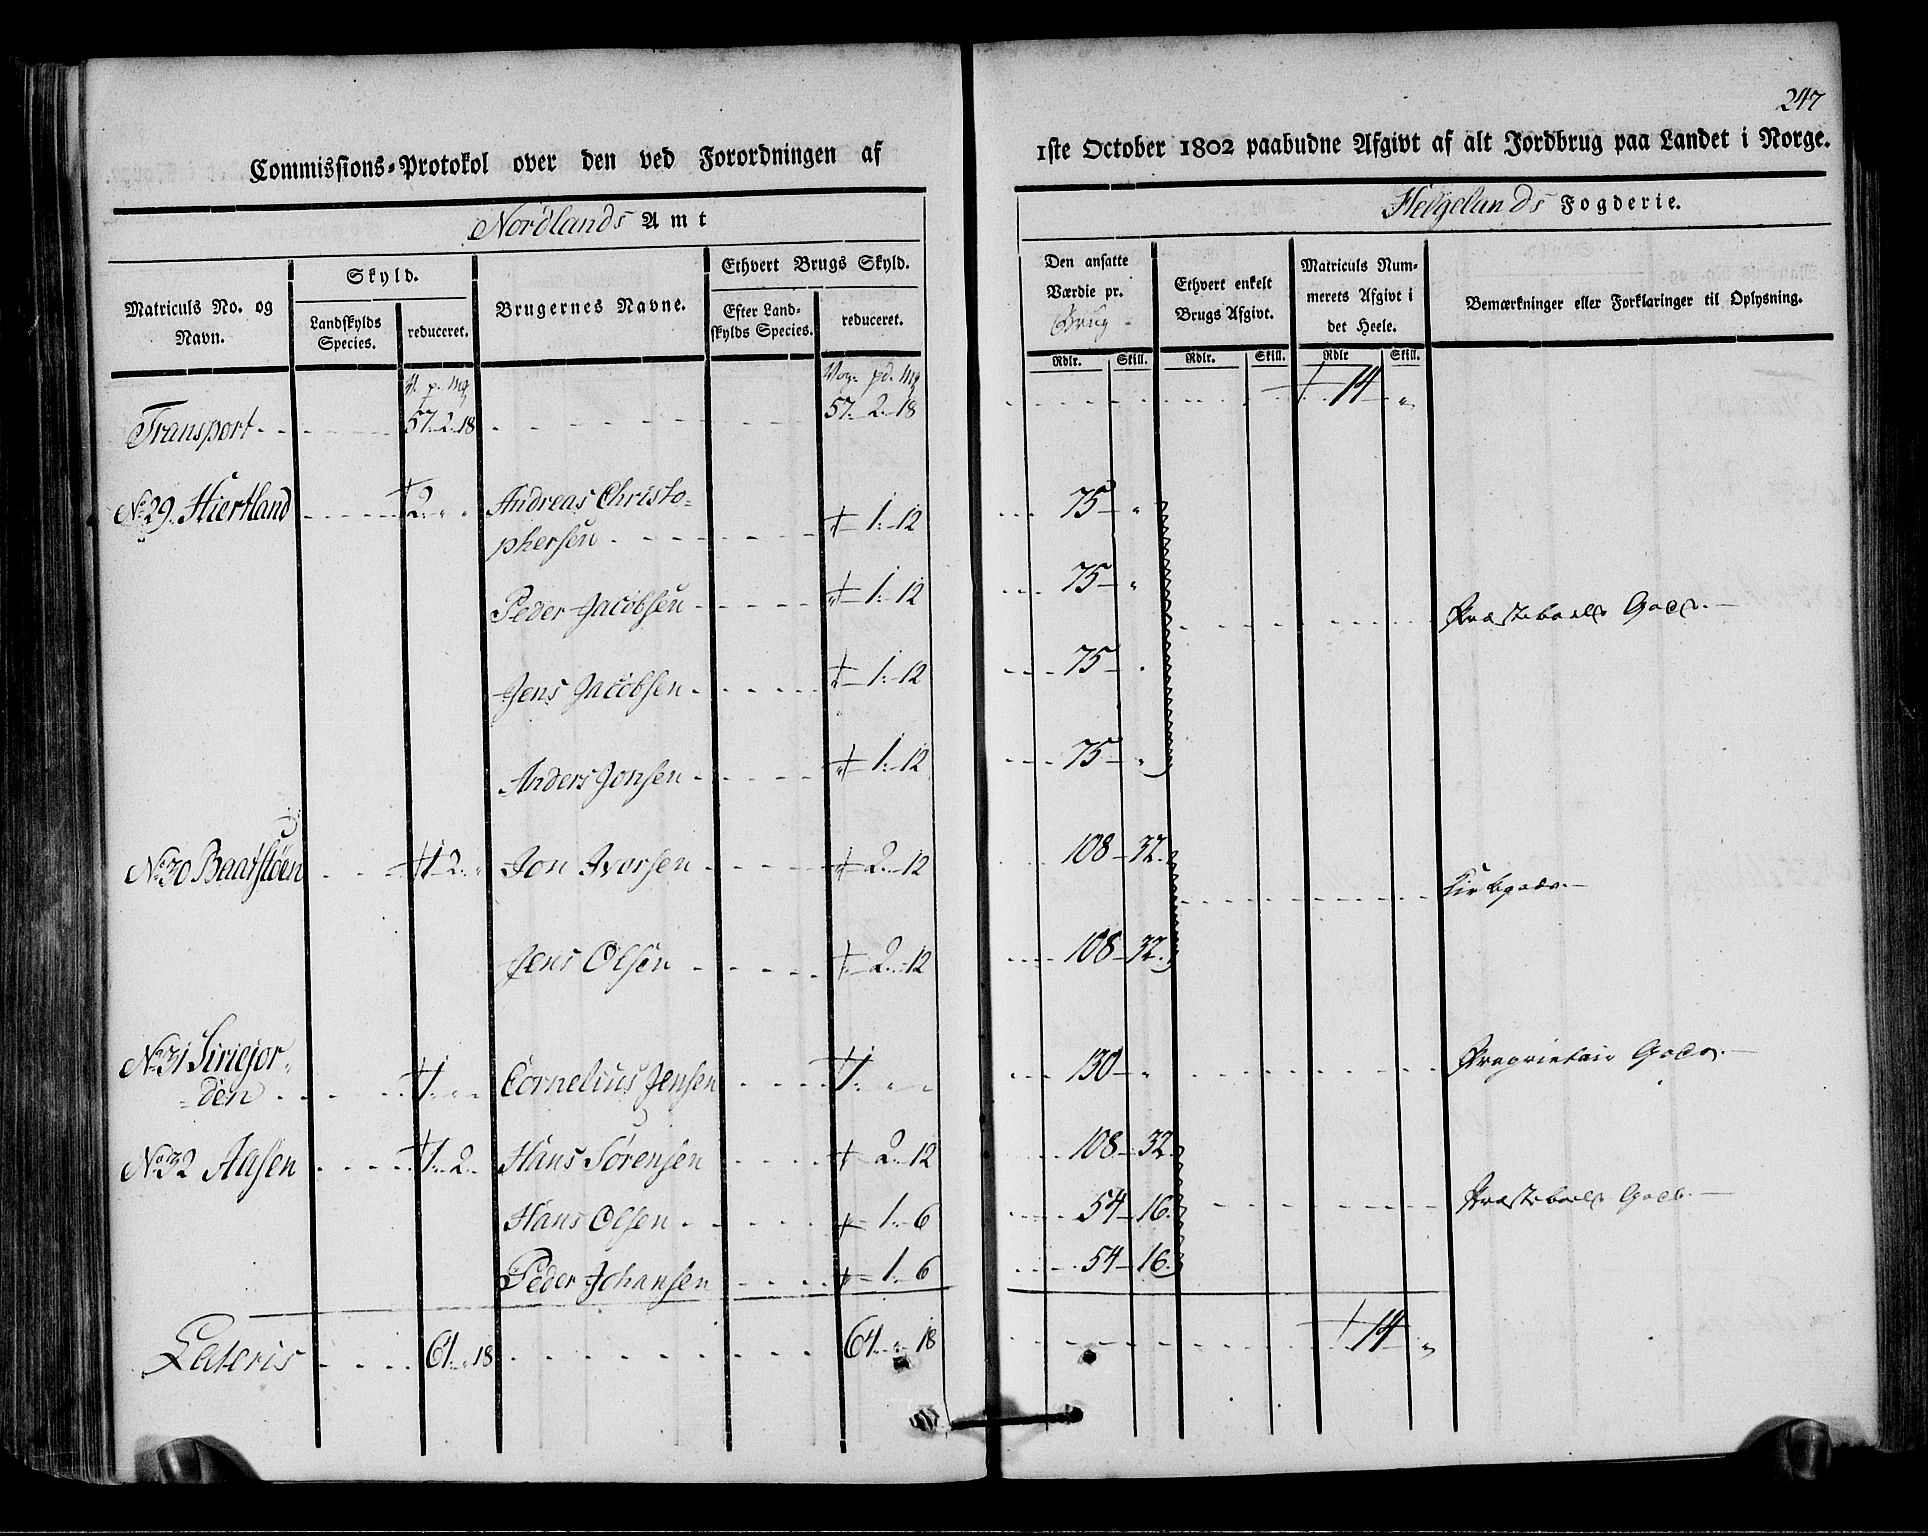 247
Commissions-Protokol over den ved Forordningen af 1ste October 1802 paabudne Afgivt af alt Jordbrug paa Landet i Norge.
Nordlands Amt
Helgelands Fogderie.
Matriculs No. og Navn.
Skyld.
Landskylds Species.
reduceret.
Brugernes Navne.
Ethvert Brugs Skyld.
Efter Landskylds Species.
reduceret.
Den ansatte Værdie pr. Brug
Rdlr. Skill.
Ethvert enkelt Brugs Afgivt.
Rdlr. Skill.
Matriculs Nummerets Afgivt i det Heele.
Rdlr Skill.
Bemærkninger eller Forklaringer til Oplysning.
V. p. Mg Vog. pd. Mg
Transport 57. 2. 18 57. 2. 18 14 "
No 29. Hiertland 2. " " Andreas Christo-
phersen 1. 12 75 "
Peder Jacobsen 1. 12 75 " Præsteboels Gods.
Jens Jacobsen 1. 12 75 "
Anders Jonsen 1. 12 75 "
No 30 Baatsløen 1 2. " Jon Iversen 2. 12 108 32. Kirkegods.
Jens Olsen 2. 12 108 32.
No 31 Siriejor-
den 1. " " Cornelius Jensen 1. " " 130 " Proprietair Gods.
No 32 Aasen 1. 2. Hans Sørensen 2. 12 108 32.
Hans Olsen 1. 6 54 16. Præsteboels Gods.
Peder Johansen 1. 6 54 16.
Lateris 61. " 18 64. " 18 14 "